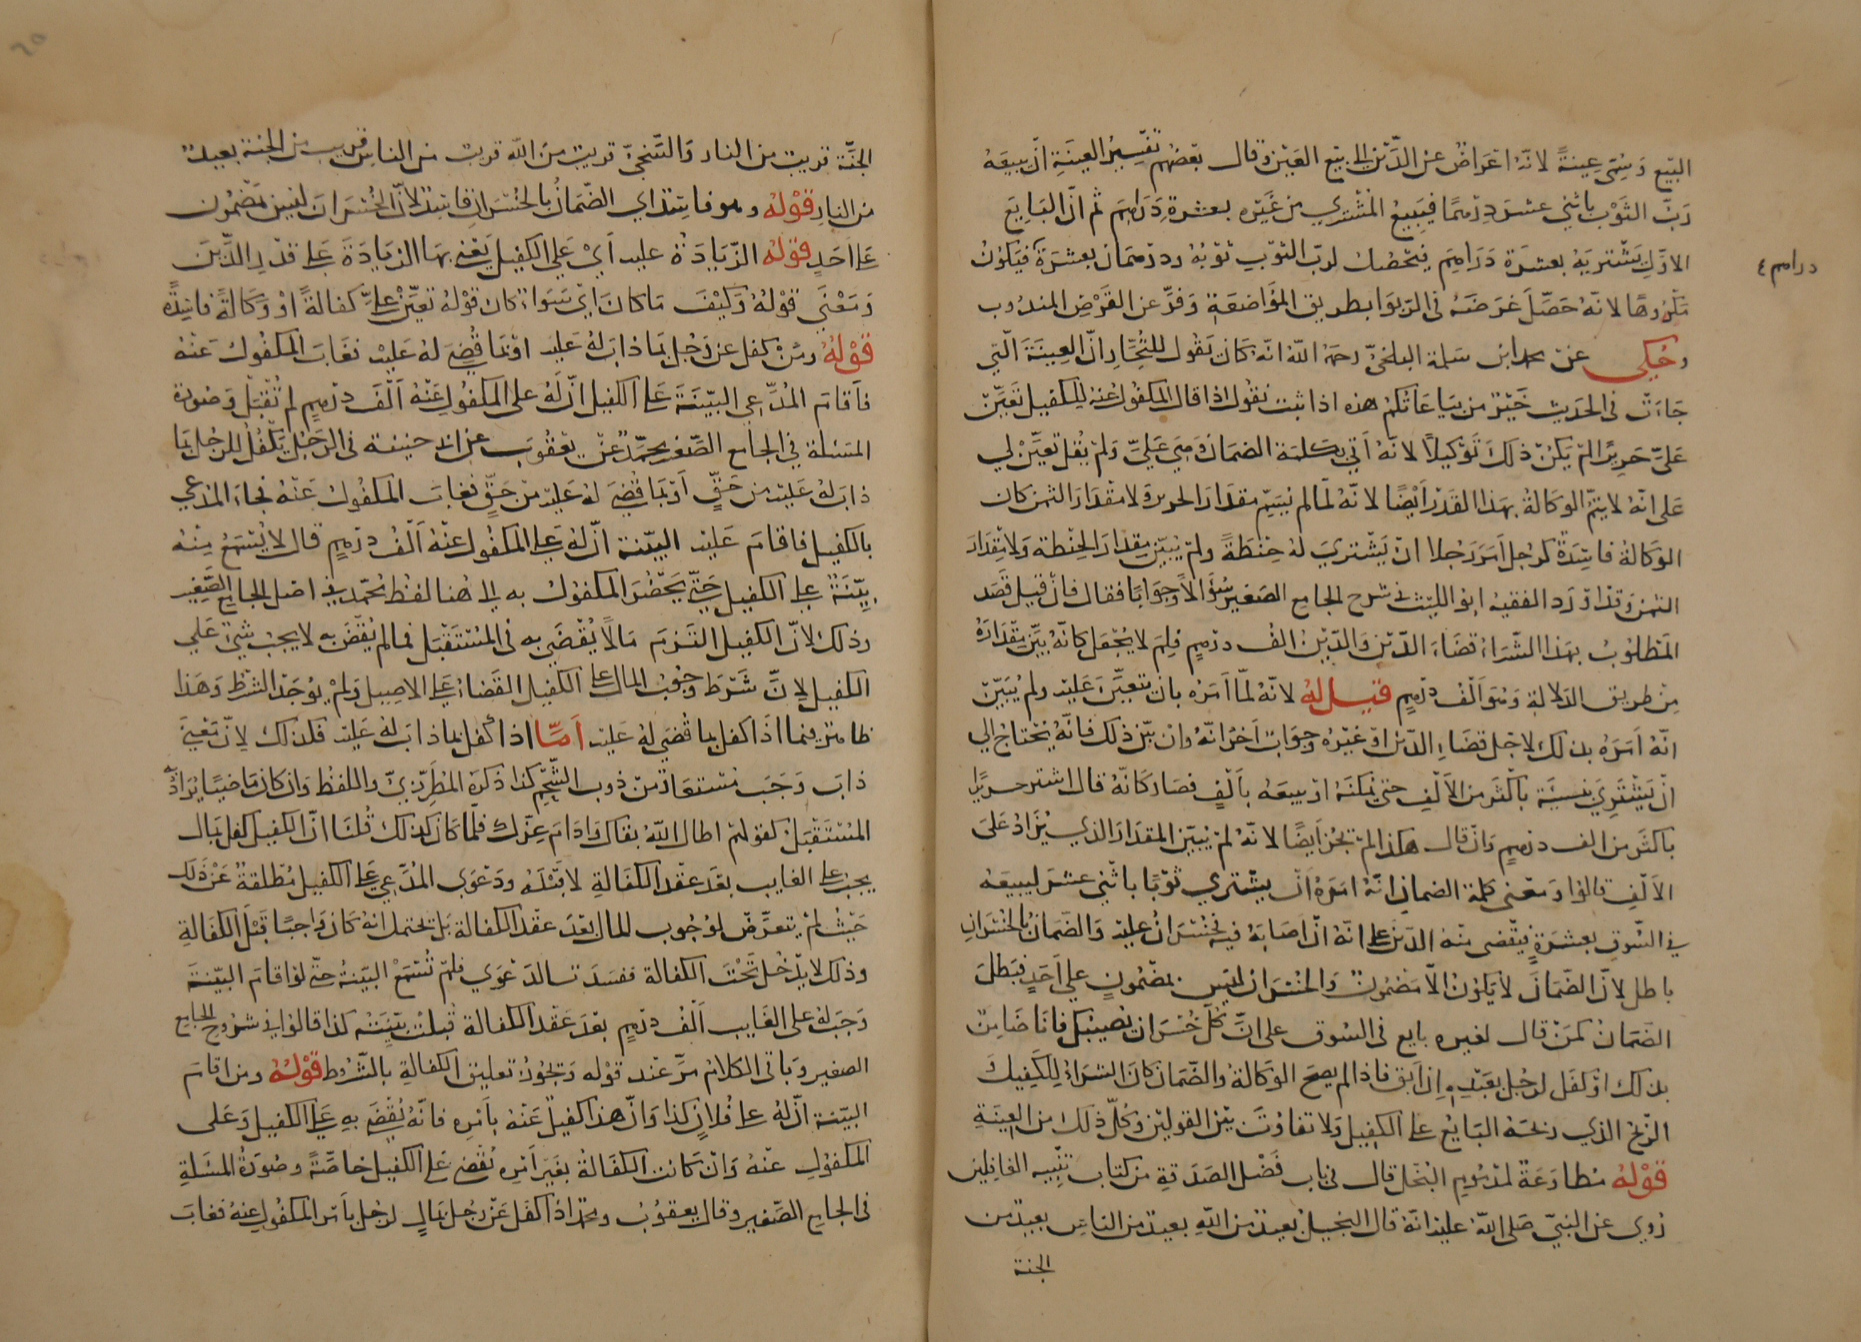 البيع وسمي عينة لانه اعراض عن الدين الى بيع العين وقال بعضهم تفسير العينة ان يبيعه
رب الثوب باثني عشر درهما فيبيع المشتري من غيره بعشرة دراهم ثم ان البايع
الاول يشتريه بعشرة دراهم فيحصل لرب الثوب ثوبه ودرهمان بعشرة فيكون
دراهم ٤
مكروها لانه حصل غرضه في الربوا بطريق المواضعة وفر عن القرض المندوب
وحكي عن محمد ابن سلمة البلخي رحمه الله انه كان يقول للتجار ان العينة التي
جاءت في الحديث خير من بياعاتكم هذه اذا ثبت نقول اذا قال المكفول عنه للكفيل تعين
علي حريرا لم يكن ذلك توكيلا لانه اتى بكلمة الضمان وهي علي ولم يقل تعين لي
على انه لا يتم الوكالة بهذا القدر ايضا لانه لما لم يبين مقدار الحرير ولا مقدار الثمن كان
الوكالة فاسدة كرجل امر رجلا ان يشتري له حنطة ولم يبين مقدار الحنطة ولا مقدار
الثمن وقد اورد الفقيه ابو الليث في شرح الجامع الصغير سؤالا وجوابا فقال فان قيل قصد
المطلوب بهذا الشراء قضاء الدين والدين الف درهم فلم لا يجعل كانه بين مقداره
من طريق الدلالة وهو الف درهم قيل له لانه لما امره بان يتعين عليه ولم يبين
انه امره بذلك لاجل قضاء الدين او غيره وجواب اخر انه وان بين ذلك فانه يحتاج الى
ان يشتري بنسية باكثر من الالف حتى يمكنه ان يبيعه بالف فصار كانه قال اشتر حريرا
باكثر من الف درهم وان قال هكذا لم يجز ايضا لانه لم يبين المقدار الذي يزاد على
الالف قالوا ومعنى كلمة الضمان انه امره ان يشتري ثوبا باثني عشر ليبيعه
في السوق بعشرة فيقضى منه الدين على انه ان اصابه فيه خسران عليه والضمان بالخسران
باطل لان الضمان لا يكون الا مضمون والخسران ليس بمضمون على احد فبطل
الضمان كمن قال لغيره بايع في السوق على ان كل خسران يصيبك فانا ضامن
بذلك او كفل لرجل بعبده ان ابق فاذا لم يصح الوكالة والضمان كان الشراء للكفيل
الربح الذي ربحه البايع على الكفيل ولا تفاوت بين القولين وكل ذلك من العينة
قوله مطاوعة لمذموم البخل قال في باب فضل الصدقة من كتاب تنبيه الغافلين
روي عن النبي صلى الله عليه انه قال البخيل بعيد من الله بعيد من الناس بعيد من
الجنة
الجنة قريب من النار والسخي قريب من الله قريب من الناس قريب من الجنة بعيد
من النار قوله وهو فاسد اي الضمان بالخسران فاسد لان الخسران ليس مضمون
على احد قوله الزيادة عليه اي على الكفيل يعني بها الزيادة على قدر الدين
ومعنى قوله وكيف ما كان اي سواء كان قوله تعين علي كفالة او وكالة فاسدة
قوله ومن كفل عن رجل بما ذاب له عليه او بما قضي له عليه فغاب المكفول عنه
فاقام المدعي البينة على الكفيل ان له على المكفول عنه الف درهم لم تقبل وصورة
المسئلة في الجامع الصغير محمد عن يعقوب عن ابي حنيفة في الرجل يكفل للرجل بما
ذاب له عليه من حق او بما قضي له عليه من حق فغاب المكفول عنه فجاء المدعي
بالكفيل فاقام عليه البينة ان له على المكفول عنه الف درهم قال لا يسمع منه
بينة على الكفيل حتى يحضر المكفول به الى هنا لفظ محمد في اصل الجامع الصغير
وذلك لان الكفيل التزم مالا يقضى به في المستقبل فما لم يقض به لا يجب شيء على
الكفيل لان شرط وجوب المال على الكفيل القضاء على الاصيل ولم يوجد الشرط وهذا
ظاهر فيما اذا كفل بما قضي له عليه اما اذا كفل بما ذاب له عليه فكذلك لان معنى
ذاب وجب مستعارة من ذوب الشحم كذا ذكره المطرزي واللفظ وان كان ماضيا يراد به
المستقبل كقولهم اطال الله بقاك وادام عزك فلما كان كذلك قلنا ان الكفيل كفل بمال
يجب على الغايب بعد عقد الكفالة لا قبله ودعوى المدعي على الكفيل مطلقة عن ذلك
حيث لم يتعرض لوجوب المال بعد عقد الكفالة بل يحتمل انه كان واجبا قبل الكفالة
وذلك لا يدخل تحت الكفالة ففسدت الدعوى فلم تسمع البينة حتى لو اقام البينة
وجب له على الغايب الف درهم بعد عقد الكفالة قبلت بينته كذا قالوا في شروح الجامع
الصغير وباقي الكلام مر عند قوله ويجوز تعليق الكفالة بالشروط قوله ومن اقام
البينة ان له على فلان كذا وان هذا كفيل عنه بامره فانه يقضى به على الكفيل وعلى
المكفول عنه وان كانت الكفالة بغير امره يقضى على الكفيل خاصة وصورة المسئلة
في الجامع الصغير وقال يعقوب ومحمد اذا كفل عن رجل بمال لرجل بامر المكفول عنه فغاب